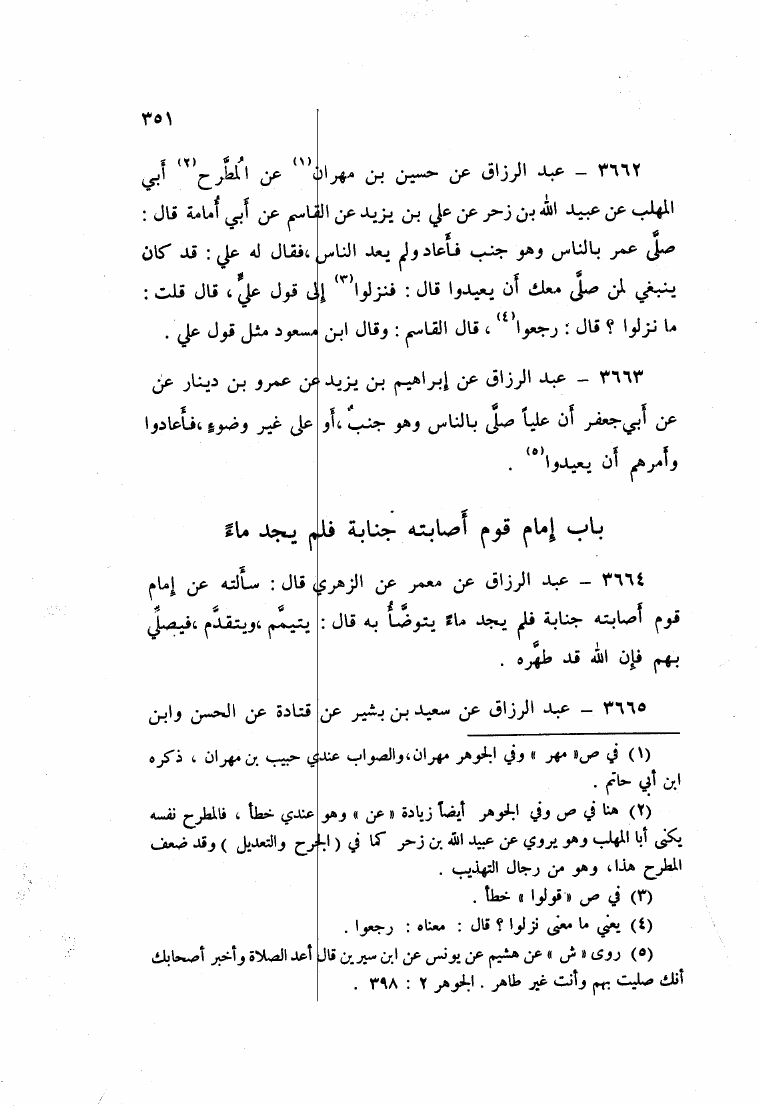 ٣٥١
٣٦٦٢ – عبد الرزاق عن حسين بن مهران(١) عن المُطَّرح(٢) أَبي
المهلب عن عبيد الله بن زحر عن علي بن يزيد عن القاسم عن أَبي أُمامة قال :
صلَّى عمر بالناس وهو جنب فأَعاد ولم يعد الناس ،فقال له علي : قد كان
ينبغي لمن صلَّى معك أَن يعيدوا قال : فنزلوا(٣) إِلى قول عليٍّ ، قال قلت :
ما نزلوا ؟ قال : رجعوا(٤) ، قال القاسم : وقال ابن مسعود مثل قول علي .
٣٦٦٣ – عبد الرزاق عن إِبراهيم بن يزيد عن عمرو بن دينار عن
عن أَبي جعفر أَن علياً صلَّى بالناس وهو جنبٌ ،أَو على غير وضوءٍ ،فأَعادوا
وأَمرهم أَن يعيدوا(٥) .
باب إِمام قوم أَصابته جنابة فلم يجد ماءً
٣٦٦٤ – عبد الرزاق عن معمر عن الزهري قال : سأَلته عن إِمام
قوم أَصابته جنابة فلم يجد ماءً يتوضَّأُ به قال : يتيمَّم ،ويتقدَّم ،فيصلِّي
بهم فإن الله قد طهَّره .
٣٦٦٥ – عبد الرزاق عن سعيد بن بشير عن قتادة عن الحسن وابن
(١) في ص« مهر » وفي الجوهر مهران،والصواب عندي حبيب بن مهران ، ذكره
ابن أبي حاتم .
(٢) هنا في ص وفي الجوهر أيضاً زيادة « عن » وهو عندي خطأ ، فالمطرح نفسه
يكنى أبا المهلب وهو يروي عن عبيد الله بن زحر كما في (الجرح والتعديل ) وقد ضعف
المطرح هذا، وهو من رجال التهذيب .
(٣) في ص « قولوا » خطأ .
(٤) يعني ما معنى نزلوا ؟ قال : معناه : رجعوا .
(٥) روى « ش » عن هشيم عن يونس عن ابن سيرين قال أعد الصلاة وأخبر أصحابك
أنك صليت بهم وأنت غير طاهر . الجوهر ٢ : ٣٩٨ .